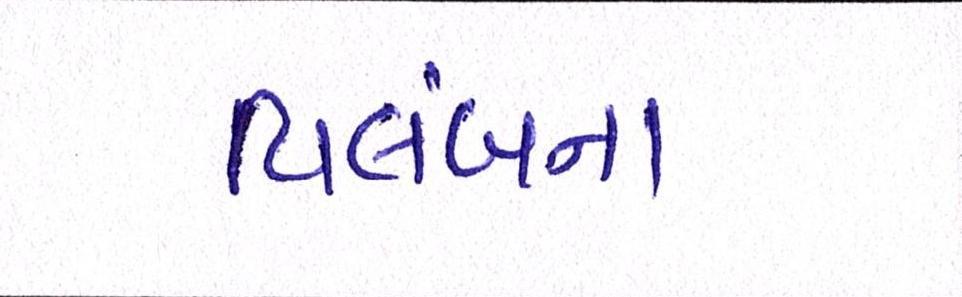 વિલંબના